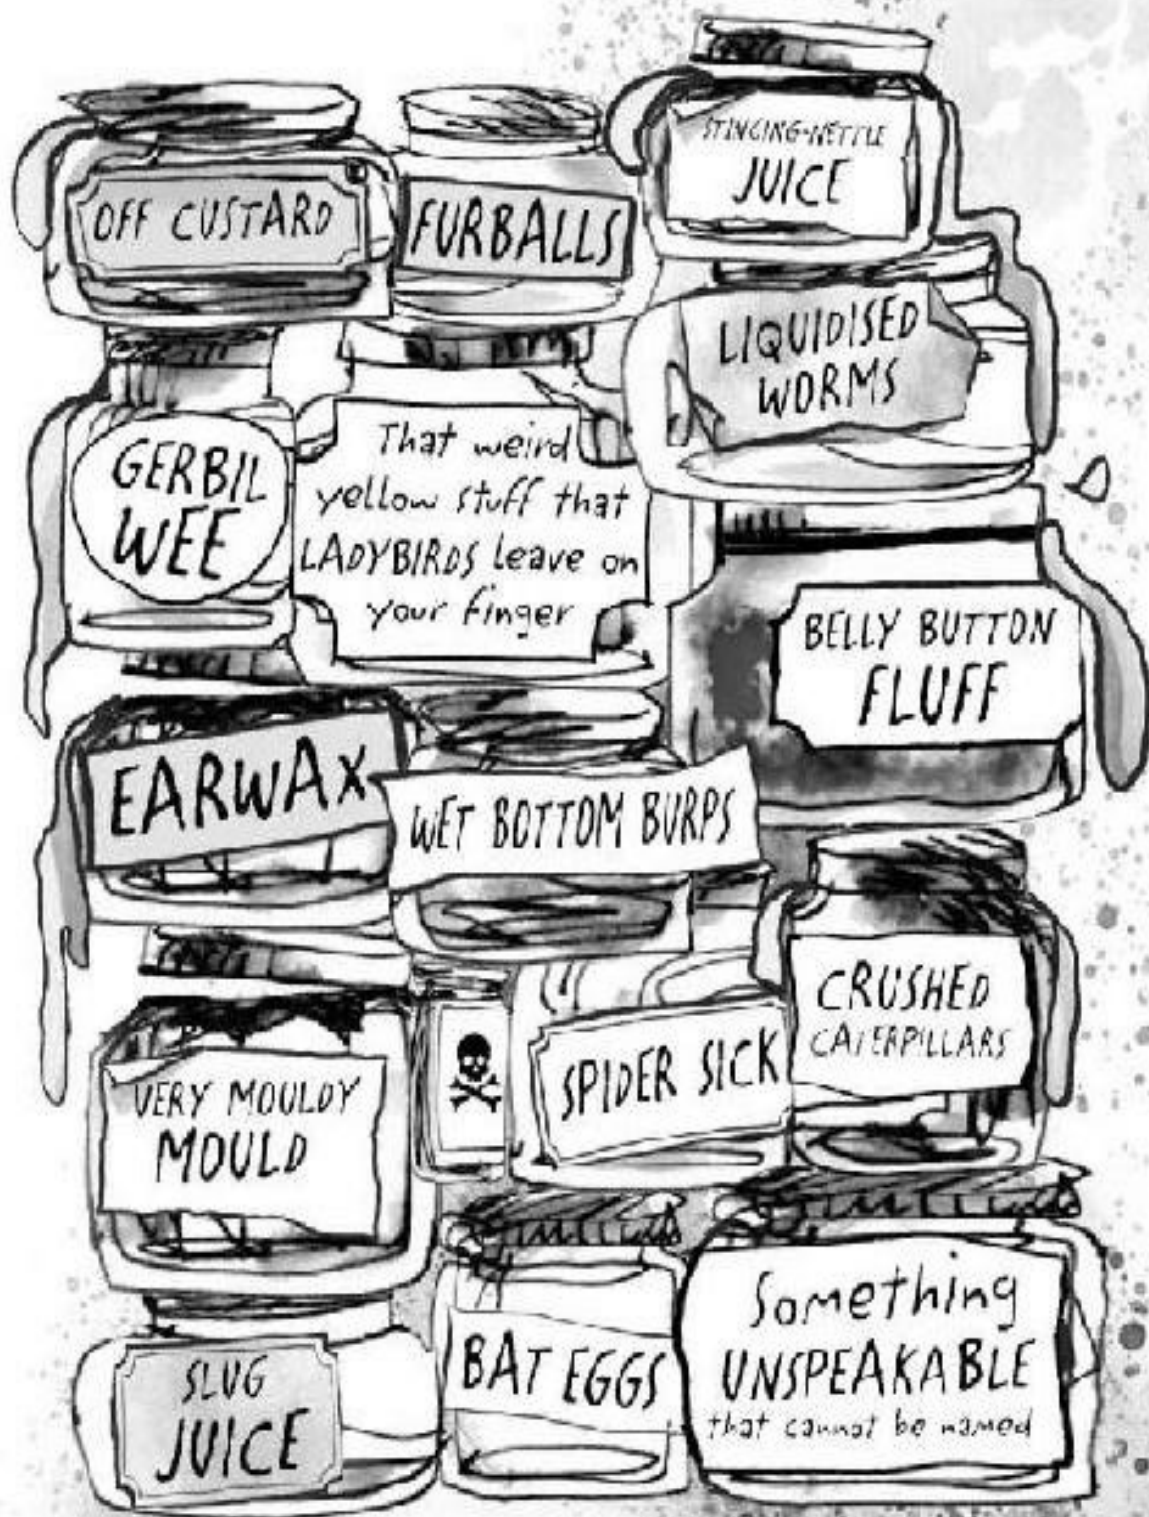 OFF CUSTARD
FURBALLS
STINGING-NETTLE
JUICE
LIQUIDISED
WORMS
GERBIL
WEE
That weird
yellow stuff that
LADYBIRDS leave on
your finger
BELLY BUTTON
FLUFF
EARWAX
WET BOTTOM BURPS
CRUSHED
CATERPILLARS
VERY MOULDY
MOULD
SPIDER SICK
SLUG
JUICE
BAT EGGS
Something
UNSPEAKABLE
that cannot be named